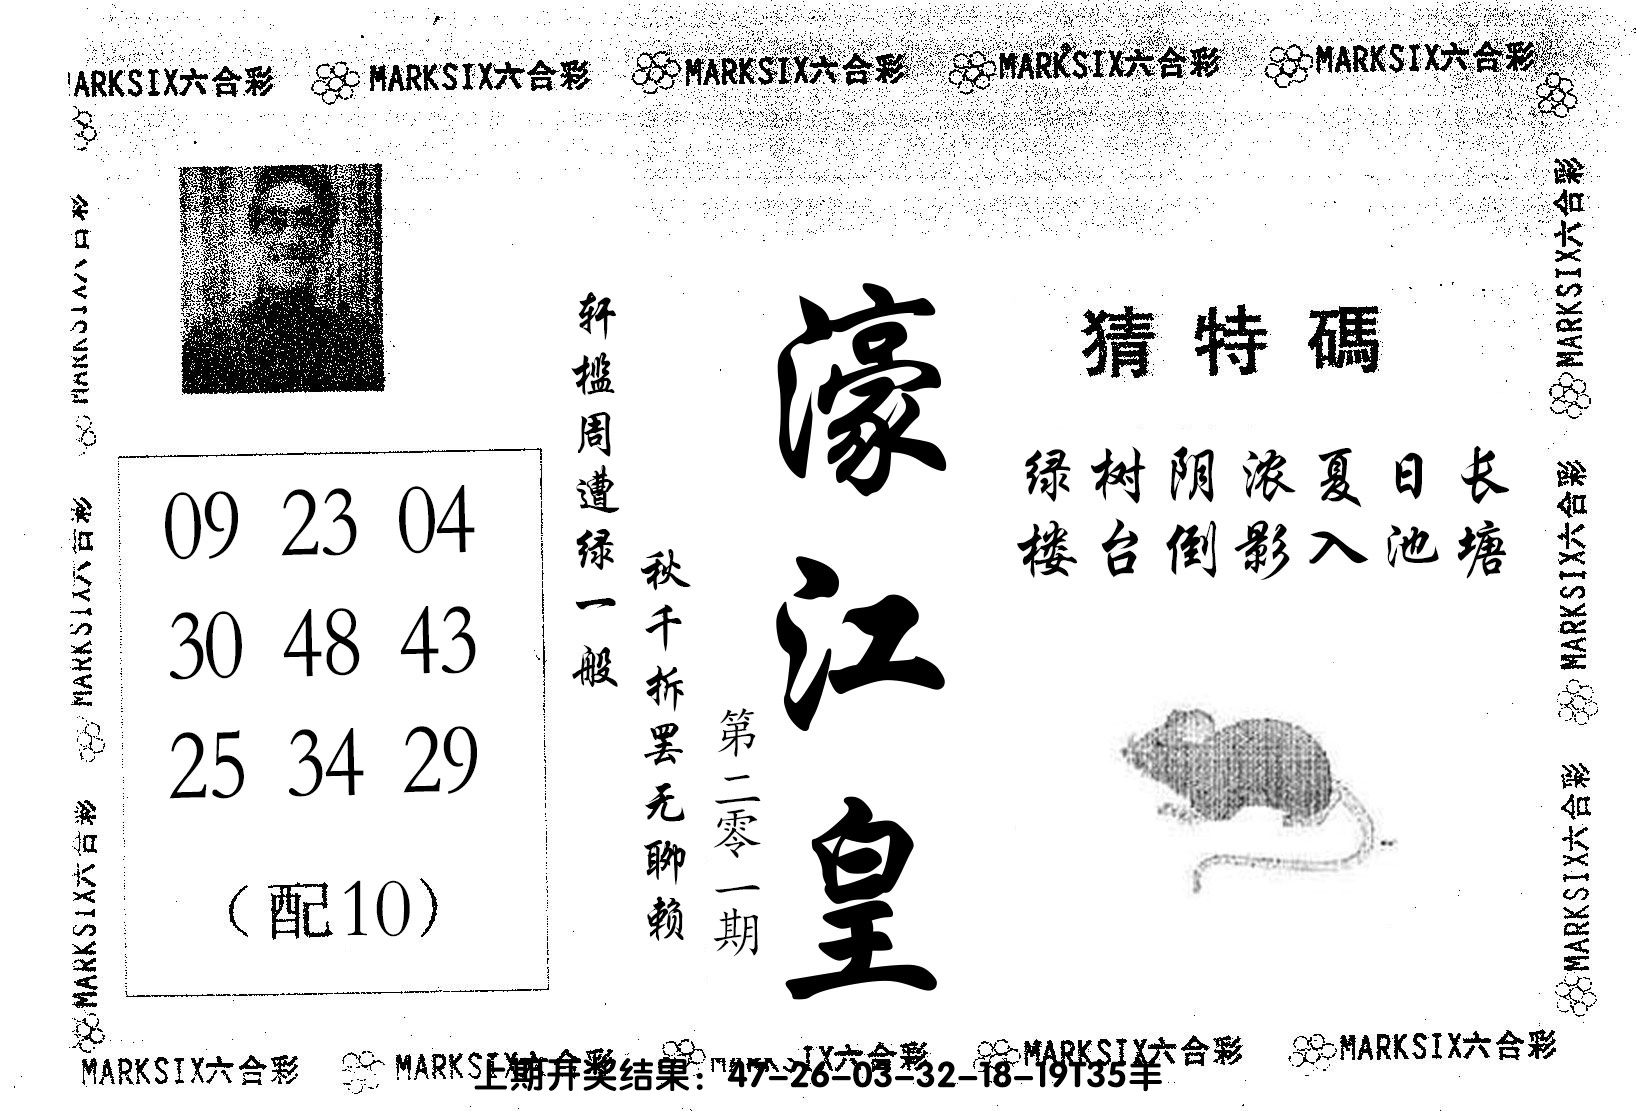 MARKSIX六合彩 MARKSIX六合彩 MARKSIX六合彩 MARKSIX六合彩
猜特碼
绿树阴浓夏日长
楼台倒影入池塘
濠江皇
第二零一期
轩槛周遭绿一般
秋千拆罢无聊赖
09 23 04
30 48 43
25 34 29
（配10）
MARKSIX六合彩
MARKSIX六合彩
MARKSIX六合彩
MARKSIX六合彩
MARKSIX六合彩
MARKSIX六合彩 MARKSIX六合彩 MARKSIX六合彩 MARKSIX六合彩
上期开奖结果：47-26-03-32-18-19T35羊